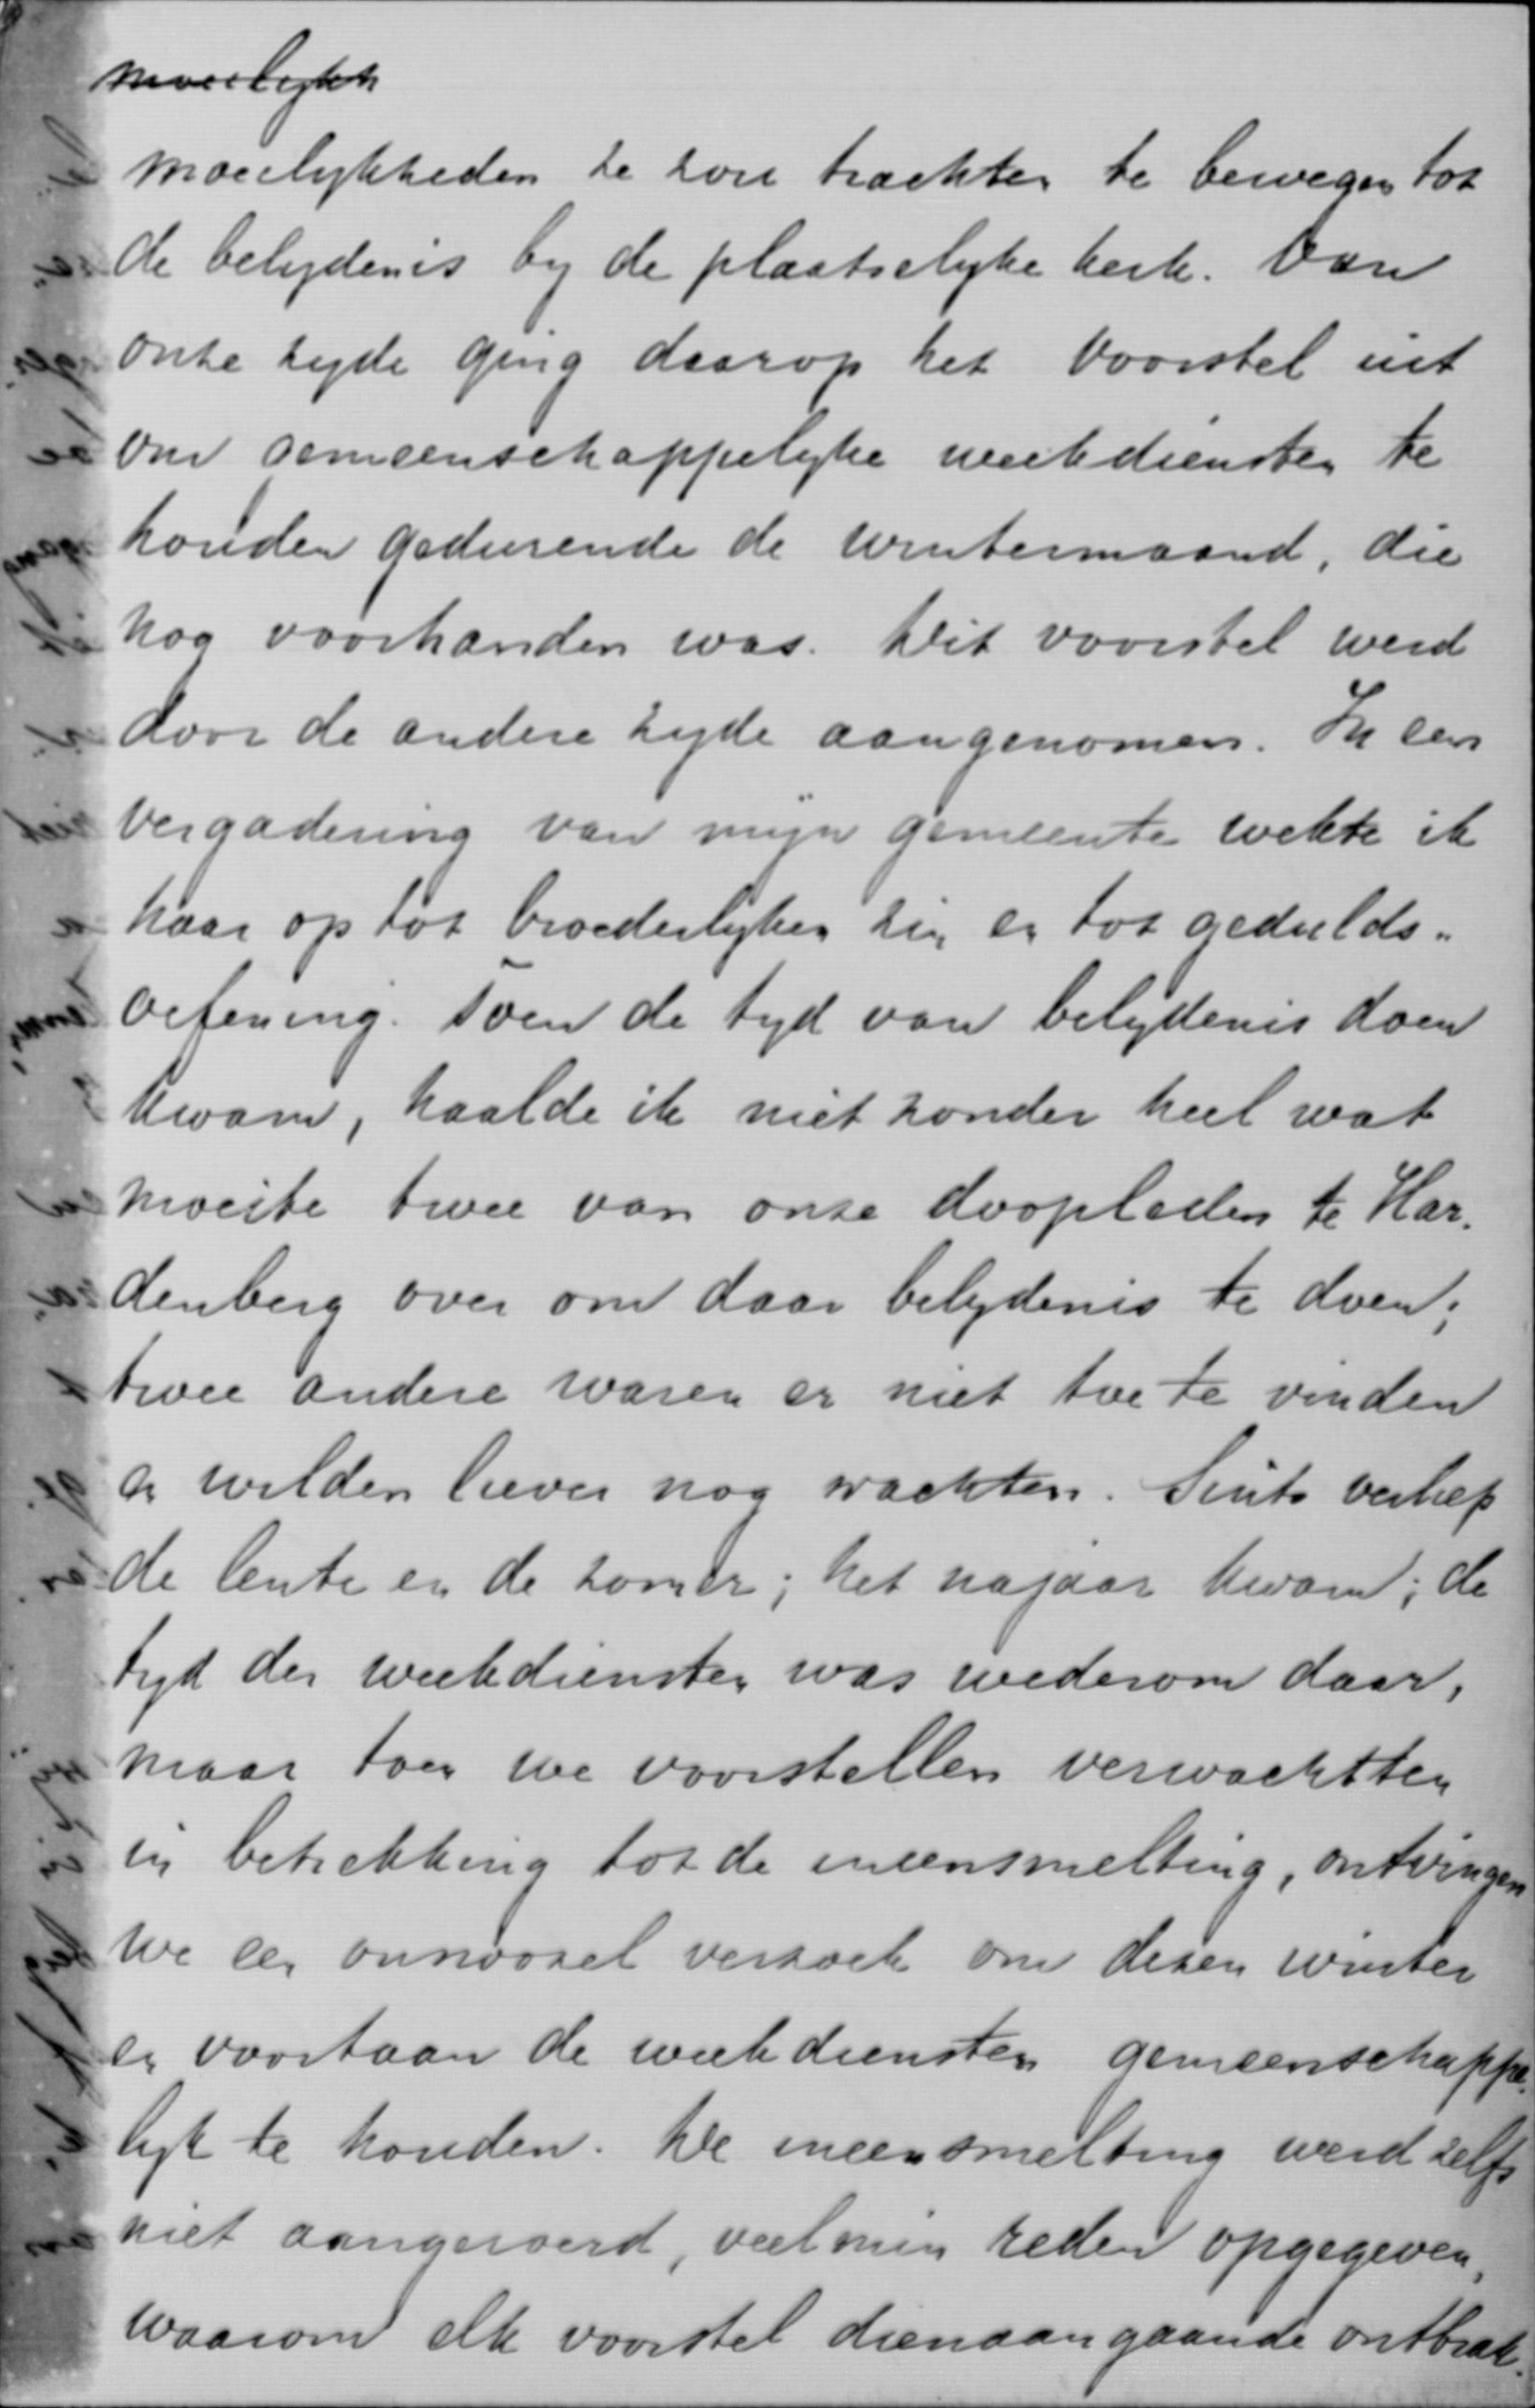 moeilykh
moeilykheden ze zou trachten te bewegen tot
de belydenis by de plaatselyke kerk. Van
onze zyde ging daarop het voorstel uit
om gemeenschappelyke weekdiensten te
houden gedurende de wintermaand, die
nog voorhanden was. Dit voorstel werd
door de andere zyde aangenomen. In een
vergadering van mijn gemeente wekte ik
haar op tot broederlyken zin en tot gedulds-
oefening. Toen de tyd van belydenis doen
kwam, haalde ik niet zonder heel wat
moeite twee van onze doopleden te Har-
denberg over om daar belydenis te doen;
twee andere waren er niet toe te vinden
en wilden liever nog wachten. Sints verliep
de lente en de zomer; het najaar kwam; de
tyd der weekdiensten was wederom daar,
maar toen we voorstellen verwachtten
in betrekking tot de ineensmelting, ontvingen
we een onnoozel verzoek om dezen winter
en voortaan de weekdiensten gemeenschappe-
lyk te houden. De ineensmelting werd zelfs
niet aangeroerd, veelmin reden opgegeven,
waarom elk voorstel dienaangaande ontbrak.